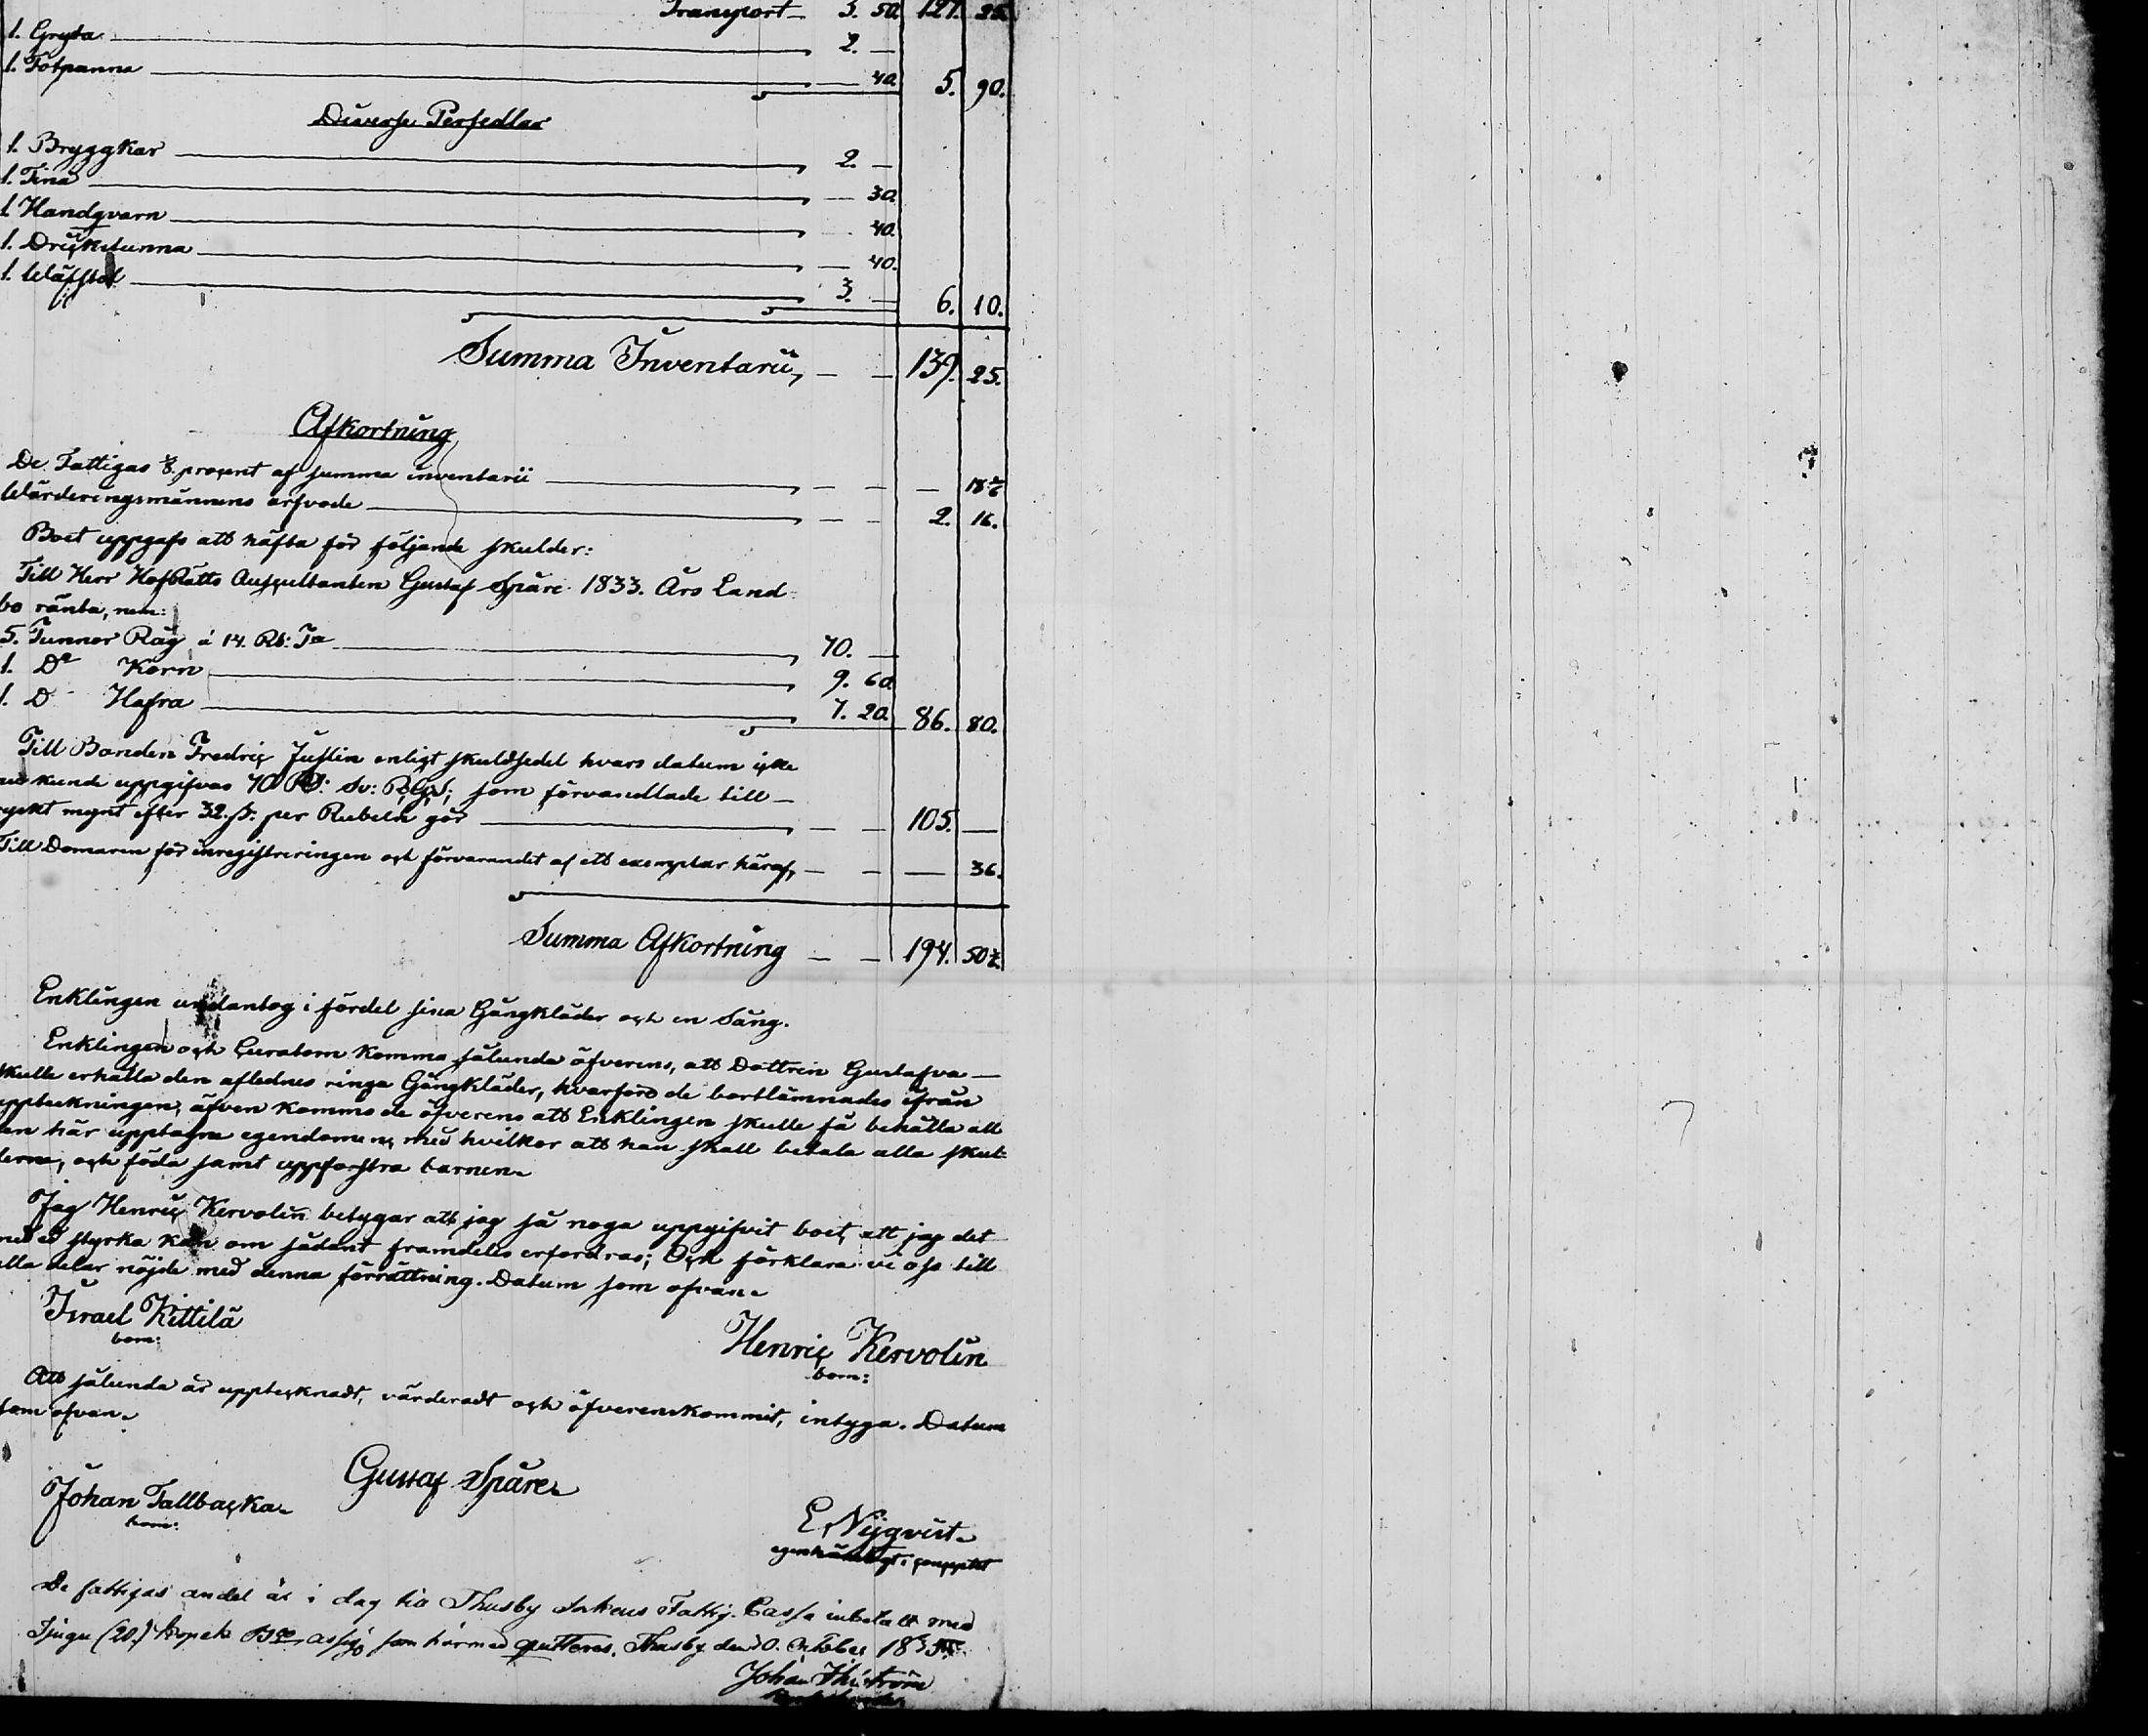 Transport — 3. 50. 127. 25.
1. Gryta — 2. —
1. Fotpanna — 40. 5. 90.
Diverse Persedlar
1. Bryggkar — 2. —
1. Tina — 30.
1. Handqvarn — 40.
1. Drickstunna — 40.
1. Wäfstol — 3. — 6. 10.
Summa Inventarii, — — 139. 25.
Afkortning
De Fattigas 1/8 procent af summa inventarii — — — 18
Wärderingsmännens arfvode — — 2. 16.
Boet uppgafs att häfta för följande skulder:
Till Herr HofRätts Auscultanten Gustaf Spåre 1833. Års Land
bo ränta, nem:
5. Tunnor Råg á 14. Rb: Tn — 70. —
1. Do Korn — 9. 60.
1. D Hafra — 7. 20. 86. 80.
Till Bonden Fredric Juslin enligt skuldsedel hvars datum icke
nu kunde uppgifvas 70 Rd: Sv: RGS; som förvandlade till —
ryskt mynt efter 32. s: per Rubeln gör — — 105. —
Till Domaren för inregistreringen och förvarandet af ett exemplar häraf, — — — 36.
Summa Afkortning — — 194. 50½.
Enklingen undantog i fördel sina Gångkläder och en Säng.
Enklingen och Curatorn komma sålunda öfverens, att Dottren Gustafva —
skulle erhålla den aflednes ringa Gångkläder, hvarföre de bortlämnades ifrån
uppteckningen; äfven kommo de öfverens att Enklingen skulle få behålla all
den här upptagna egendomen, med hvilkor att han skall betala alla skul-
derne, och föda samt uppfostra barnen.
Jag Henric Kervolin betygar att jag så noga uppgifvit boet, att jag det
med ed styrka kan om sådant framdeles erfordras; Och förklara vi oss till
alla delar nöjde med denna förrättning. Datum som ofvan.
Israel Kittilä
bom:
Henric Kervolin
bom:
Att sålunda är upptecknadt, värderadt och öfverenskommit, intyga. Datum
som ofvan.
Gustaf Spåre
Johan Tallbacka
bom:
E. Nyqvist
egenhändigt
De fattigas andel är i dag til Thusby Sokens Fattig Cassa inbetalt med
Tjugu (20.) kopek Bco assig som härmed qvitteras. Thusby den October
Johan